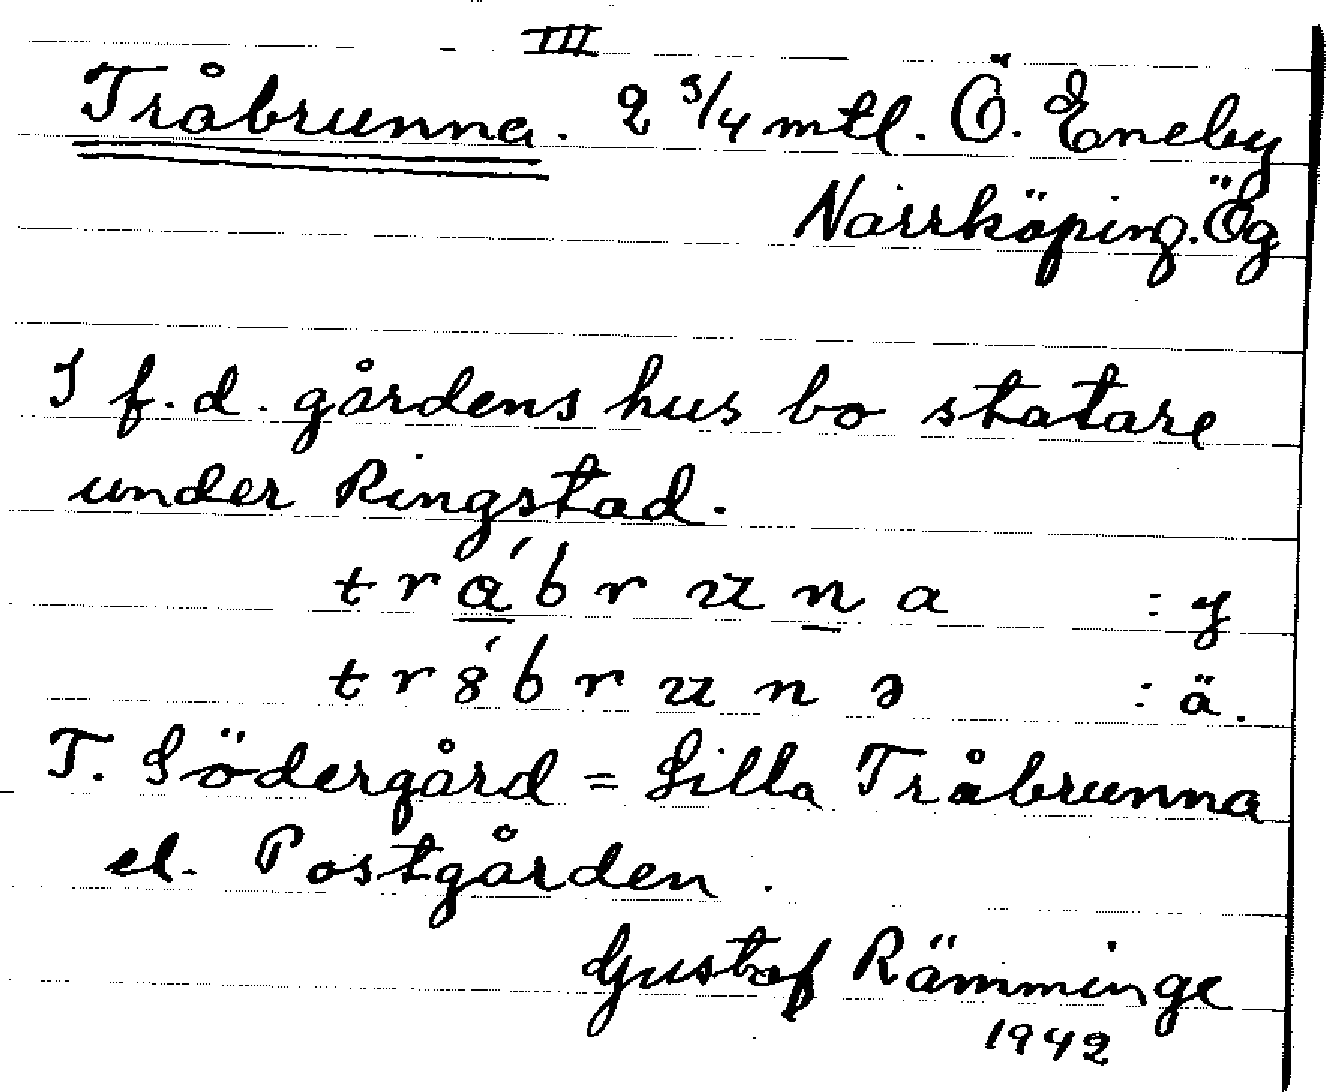 III
Tråbrunna. 2 3/4 mtl. Ö. Eneby
Norrköping. Ög
I f.d. gårdens hus bo statare
under Ringstad.
trá̲brun̲a : y
tr8́brunə : ä.
T. Södergård = Lilla Tråbrunna
el. Postgården.
Gustaf Rämminge
1942